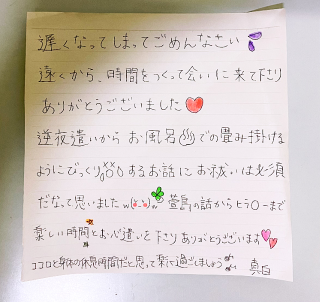 遅くなってしまってごめんなさい
遠くから、時間をつくって会いに来て下さり
ありがとうございました
逆夜遣いから お風呂 での畳み掛ける
ようにびっくり するお話に お祓いは必須
だなって思いました w の話から ヒラ○ーまで
楽しい時間とお心遣いを下さり ありがとうございます
ココロと身体の休息時間だと思って楽に過ごしましょう 真白